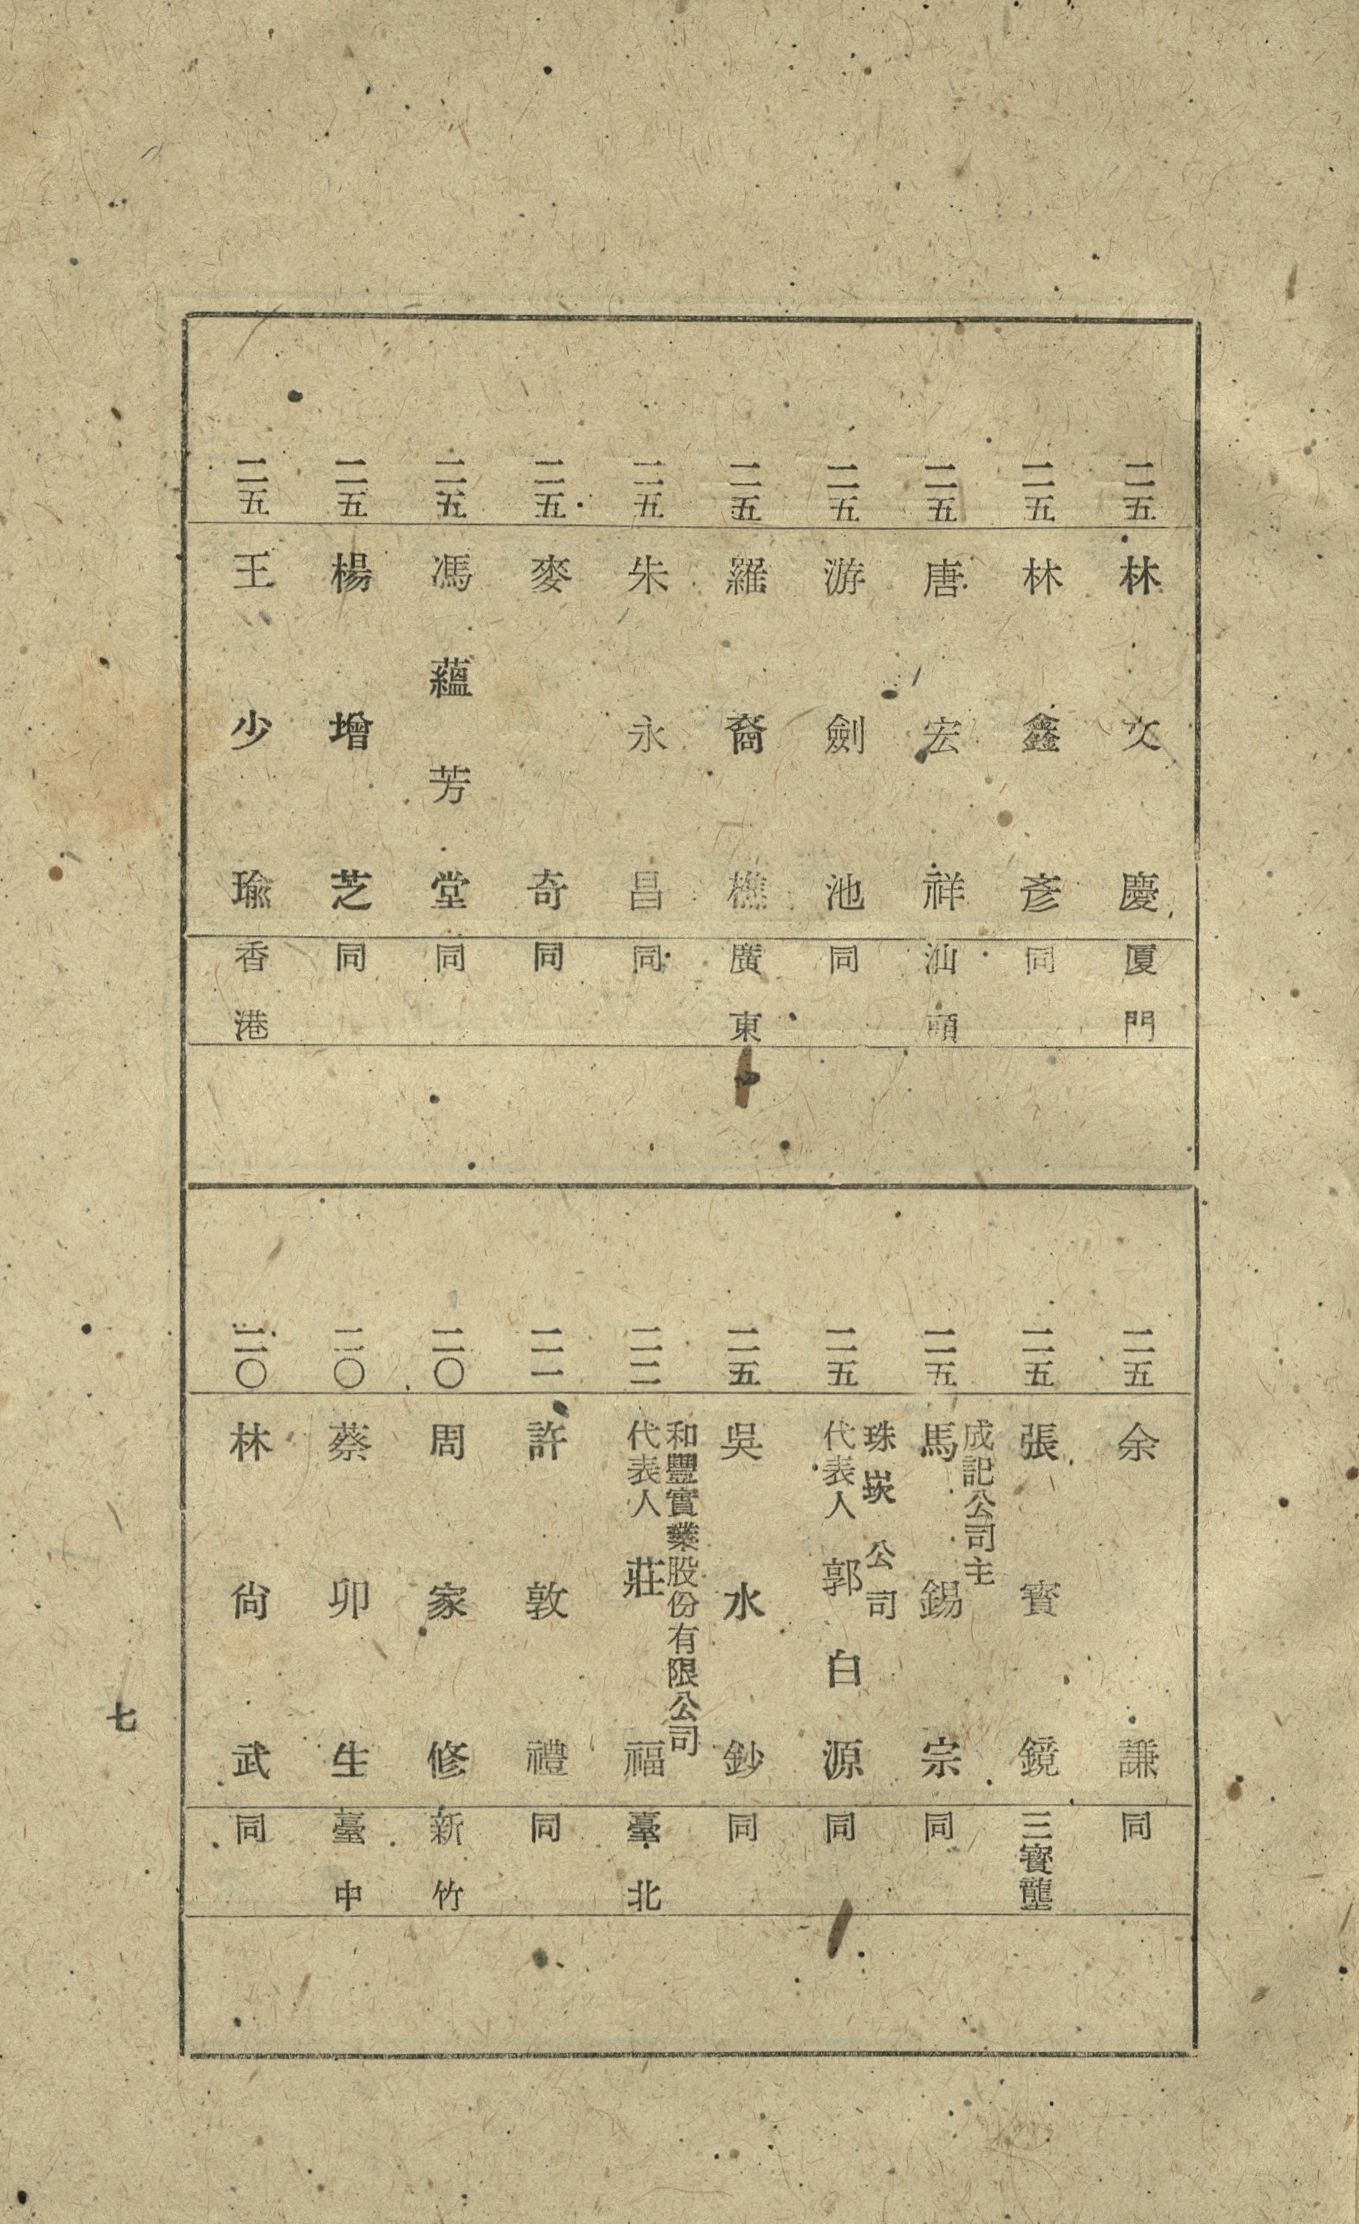 二五 林文慶 厦門
二五 林鑫彥 同
二五 唐宏祥 汕頭
二五 游劍池 同
二五 羅裔樵 廣東
二五 朱永昌 同
二五 麥奇 同
二五 馮蘊芳堂 同
二五 楊增芝 同
二五 王少瑜 香港
二五 余謙 同
二五 張寶鏡 三寶壟
二五 成記公司主
馬錫宗 同
二五 珠崁公司
代表人 郭白源 同
二五 吳水鈔 同
二二 和豐實業股份有限公司
代表人 莊福 臺北
二一 許敦禮 同
二〇 周家修 新竹
二〇 蔡卯生 臺中
二〇 林尙武 同
七